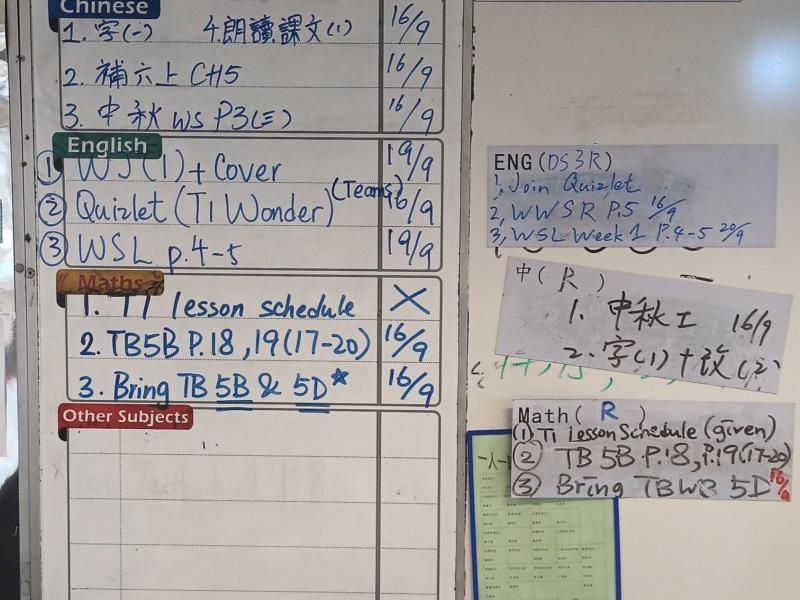 Chinese
1. 字(一) 4. 朗讀課文(1) 16/9
2. 補六上 CH5 16/9
3. 中秋 WS P3(三) 16/9
English
① WS(1) + Cover 19/9
② Quizlet (T1 Wonder) (Teams) 16/9
③ WSL p.4-5 19/9
Maths
1. T1 lesson schedule ×
2. TB5B P.18, 19(17-20) 16/9
3. Bring TB 5B & 5D* 16/9
Other Subjects
ENG (DS3R)
1, Join Quizlet
2, WWSR P.5 16/9
3, WSL Week 1 P.4-5 20/9
中( R )
1. 中秋工 16/9
2. 字(1)+改(2)
Math( R )
① T1 Lesson Schedule (given)
② TB 5B P.18, P.19(17-20)
③ Bring TB WB 5D 16/9
一人一